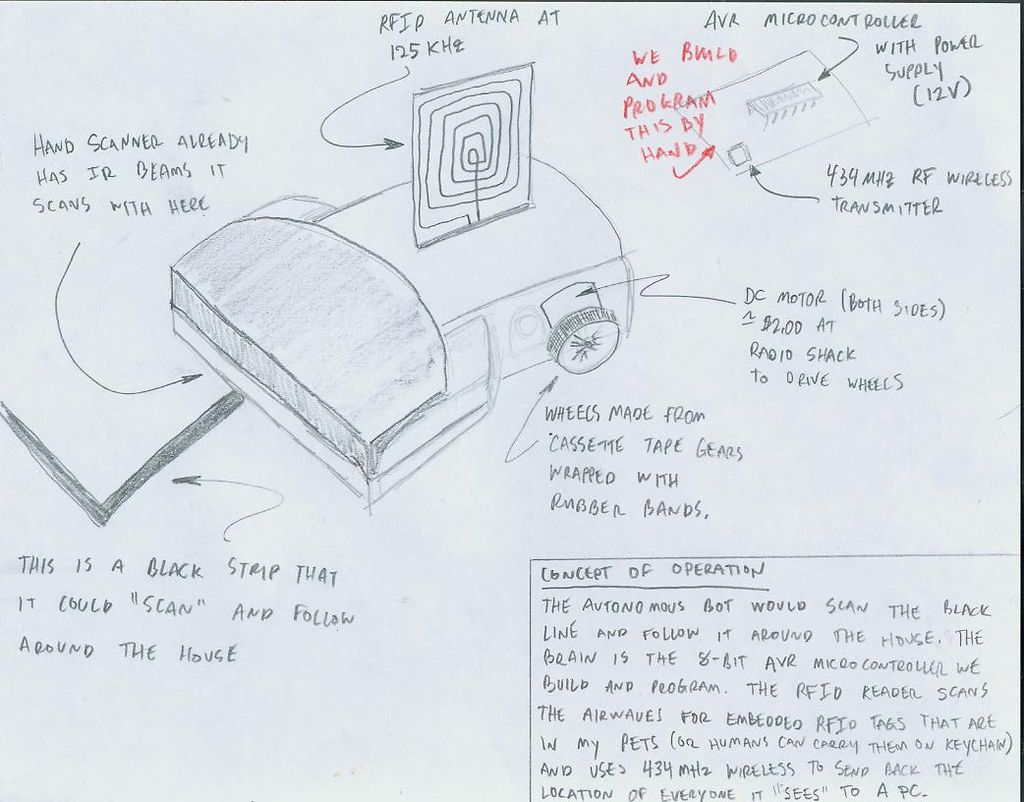 RFID ANTENNA AT
125 KHz
AVR MICROCONTROLLER
WITH POWER
SUPPLY
(12V)
WE BUILD
AND
PROGRAM
THIS BY
HAND
434 MHz RF WIRELESS
TRANSMITTER
HAND SCANNER ALREADY
HAS IR BEAMS IT
SCANS WITH HERE
DC MOTOR (BOTH SIDES)
~ $2.00 AT
RADIO SHACK
TO DRIVE WHEELS
WHEELS MADE FROM
CASSETTE TAPE GEARS
WRAPPED WITH
RUBBER BANDS.
THIS IS A BLACK STRIP THAT
IT COULD "SCAN" AND FOLLOW
AROUND THE HOUSE
CONCEPT OF OPERATION
THE AUTONOMOUS BOT WOULD SCAN THE BLACK
LINE AND FOLLOW IT AROUND THE HOUSE. THE
BRAIN IS THE 8-BIT AVR MICROCONTROLLER WE
BUILD AND PROGRAM. THE RFID READER SCANS
THE AIRWAVES FOR EMBEDDED RFID TAGS THAT ARE
IN MY PETS (OR HUMANS CAN CARRY THEM ON KEYCHAIN)
AND USES 434 MHz WIRELESS TO SEND BACK THE
LOCATION OF EVERYONE IT "SEES" TO A PC.